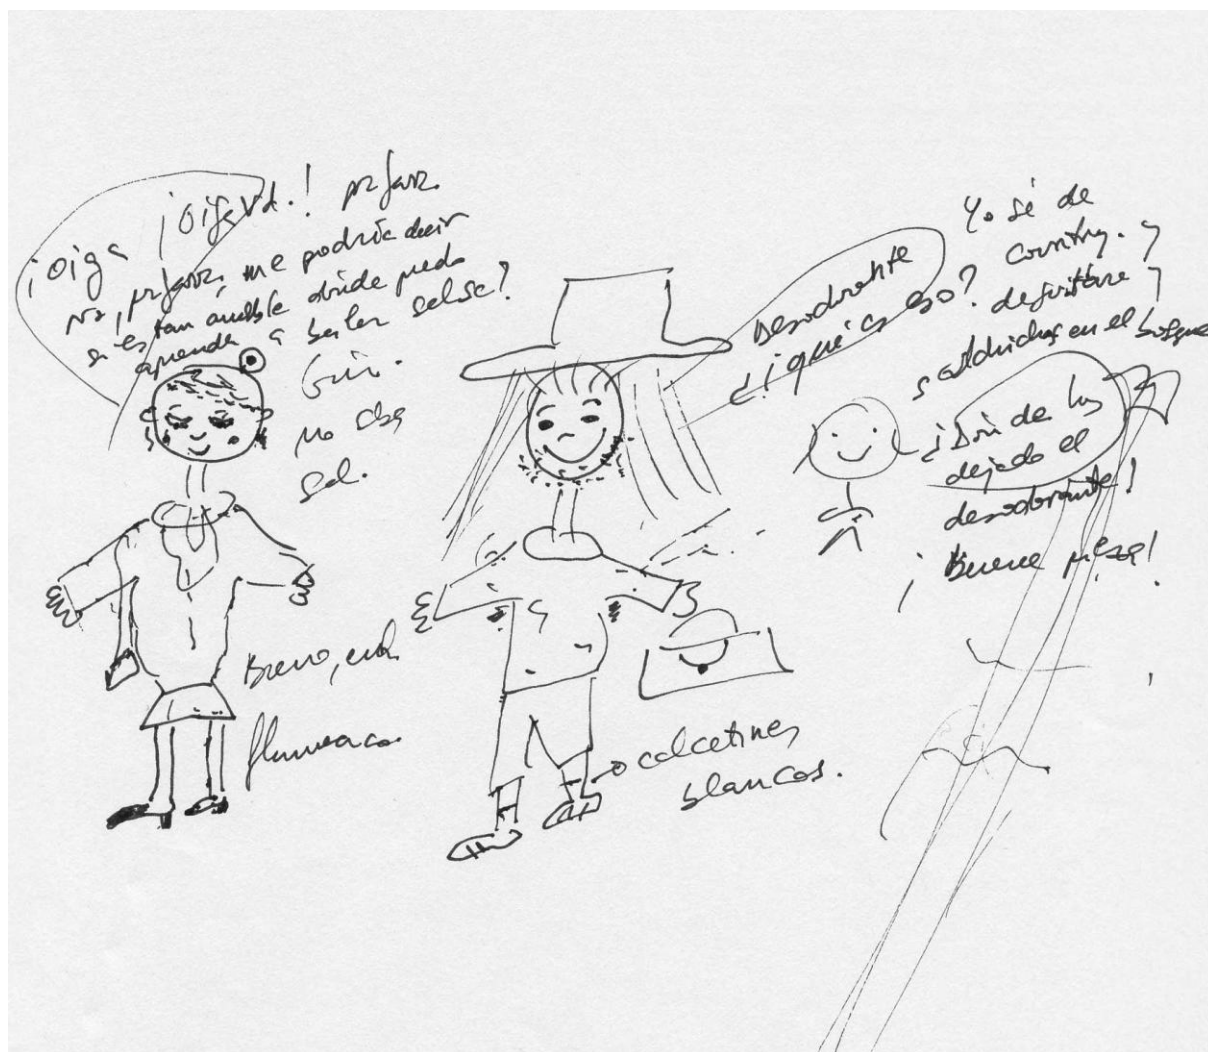 ¡oiga ¡oiga Vd.! por favor
no, por favor, me podría decir
si es tan amable dónde puedo
aprender a bailar salsa?
Guiri.
no de
sol.
Bueno,
flamenco.
Desodorante
¿¡qué es eso?
Yo sé de
country. y
de guitarra y
salchichas en el bosque
¿dónde has
dejado el
desodorante!
¡Buena pieza!
calcetines
blancos.